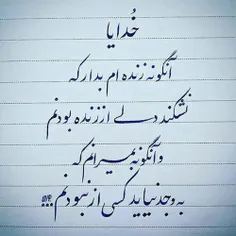 خُدایا
آنگونه زنده ام بدار که
نشکند دلے از زنده بودنم
و آنگونه بمیرانم که
به وجد نیاید کسی از نبودنم...